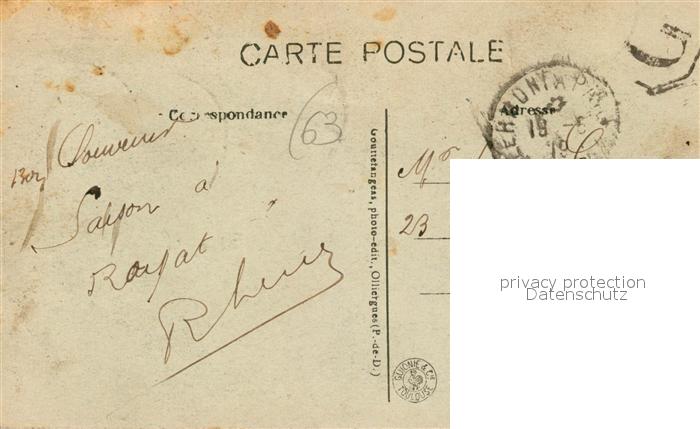 CARTE POSTALE
Correspondance
Adresse
63
Bon Souvenir
Saison à
Royat
Gouttefangeas, photo-edit., Olliergues (P.-de-D.)
Mr
23
19
GUIONIE & Cie
TOULOUSE
privacy protection
Datenschutz